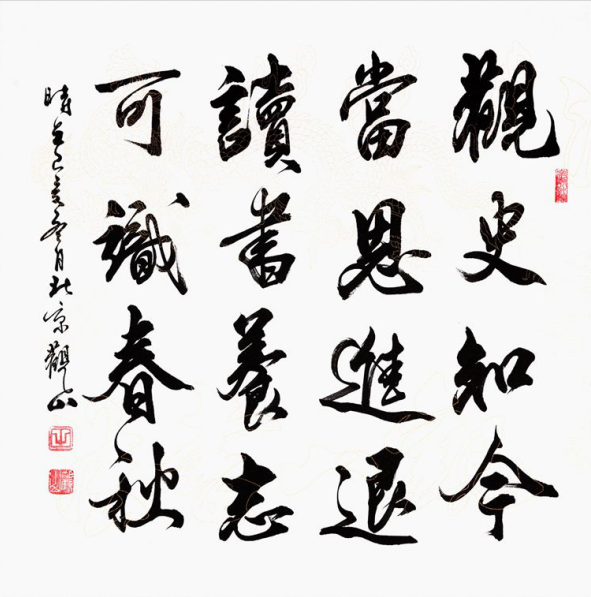 觀史知今
當思進退
讀書養志
可識春秋
時在己亥冬月北京觀山